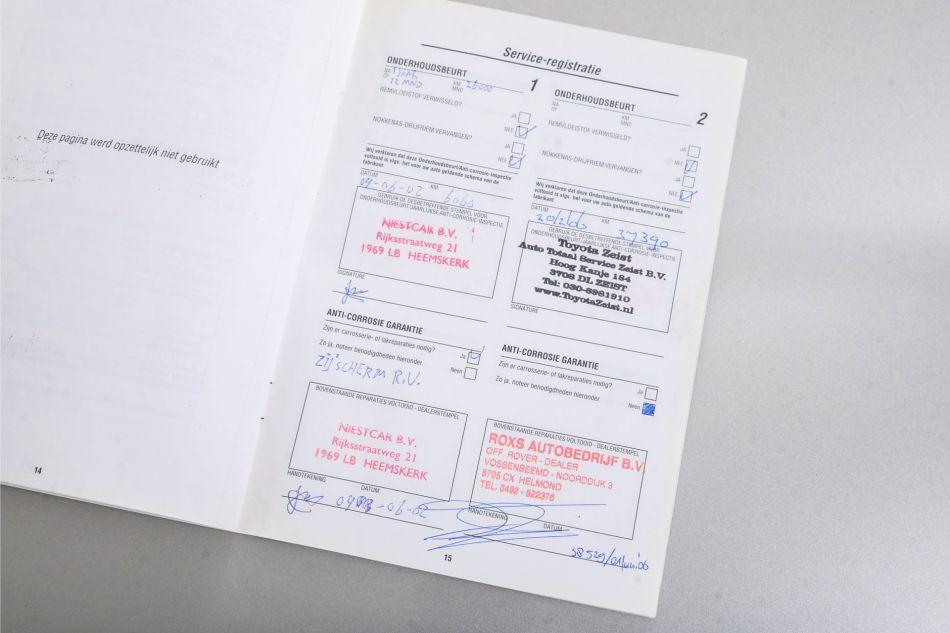 Deze pagina werd opzettelijk niet gebruikt
14
Service-registratie
ONDERHOUDSBEURT 1
NA 1 JAAR KM
OF 12 MND MND
REMVLOEISTOF VERWISSELD?
JA
NEE
NOKKENAS-DRIJFRIEM VERVANGEN?
JA
NEE
Wij verklaren dat deze Onderhoudsbeurt/Anti corrosie-inspectie
voltooid is vlgs. het voor uw auto geldende schema van de
fabrikant
DATUM KM
04-06-02
GEBRUIK DE DESBETREFFENDE STEMPEL VOOR
ONDERHOUDSBEURT/JAARLIJKSE ANTI-CORROSIE-INSPECTIE
NIESTCAR B.V.
Rijksstraatweg 21
1969 LB HEEMSKERK
SIGNATURE
ANTI-CORROSIE GARANTIE
Zijn er carrosserie- of lakreparaties nodig?
Ja
Zo ja, noteer benodigdheden hieronder
Neen
ZIJSCHERM R.V.
BOVENSTAANDE REPARATIES VOLTOOID - DEALERSTEMPEL
NIESTCAR B.V.
Rijksstraatweg 21
1969 LB HEEMSKERK
HANDTEKENING DATUM
-06-02
ONDERHOUDSBEURT 2
NA KM
OF MND
REMVLOEISTOF VERWISSELD?
JA
NEE
NOKKENAS-DRIJFRIEM VERVANGEN?
JA
NEE
Wij verklaren dat deze Onderhoudsbeurt/Anti corrosie-inspectie
voltooid is vlgs. het voor uw auto geldende schema van de
fabrikant
DATUM KM
37390
GEBRUIK DE DESBETREFFENDE STEMPEL VOOR
ONDERHOUDSBEURT/JAARLIJKSE ANTI-CORROSIE-INSPECTIE
Toyota Zeist
Auto Totaal Service Zeist B.V.
Hoog Kanje 184
3708 DL ZEIST
Tel: 030-6981910
www.ToyotaZeist.nl
SIGNATURE
ANTI-CORROSIE GARANTIE
Zijn er carrosserie- of lakreparaties nodig?
Ja
Zo ja, noteer benodigdheden hieronder
Neen
BOVENSTAANDE REPARATIES VOLTOOID - DEALERSTEMPEL
ROXS AUTOBEDRIJF B.V.
OFF. ROVER - DEALER
VOSSENBEEMD - NOORDDIJK 3
5705 CX HELMOND
TEL. 0492 - 522376
HANDTEKENING DATUM
15